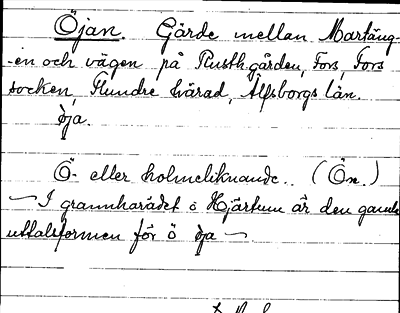 Öjan. Gärde mellan Martäng-
-en och vägen på Rusthgården, Fors, Fors
socken, Flundre härad, Älfsborgs län.
òja.
Ö- eller holmeliknande.. (Ön.)
— I grannharádet o Hjärtum är den gamla
uttalsformen för ö òja —